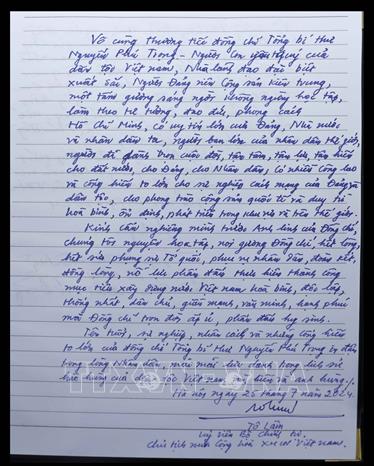 Vô cùng thương tiếc đồng chí Tổng Bí thư
Nguyễn Phú Trọng - Người con yêu quý của
dân tộc Việt Nam, Nhà lãnh đạo đặc biệt
xuất sắc, Người Đảng viên Cộng sản kiên trung,
một tấm gương sáng ngời không ngừng học tập,
làm theo tư tưởng, đạo đức, phong cách
Hồ Chí Minh, có uy tín lớn của Đảng, Nhà nước
và nhân dân ta, người bạn lớn của nhân dân thế giới,
người đã dành trọn cuộc đời, tâm tâm, tâm lực, tâm huyết
cho đất nước, cho Đảng, cho Nhân dân, có nhiều công lao
và cống hiến to lớn cho sự nghiệp cách mạng của Đảng và
dân tộc, cho phong trào cộng sản quốc tế và duy trì
hòa bình, ổn định, phát triển trong khu vực và trên thế giới.
Kính cẩn nghiêng mình trước Anh linh của Đồng chí,
chúng tôi nguyện học tập, noi gương Đồng chí, hết lòng,
hết sức phụng sự Tổ quốc, phục vụ nhân dân, đoàn kết,
đồng lòng, nỗ lực phấn đấu thực hiện thành công
mục tiêu xây dựng nước Việt Nam hòa bình, độc lập,
thống nhất, dân chủ, giàu mạnh, văn minh, hạnh phúc
mà Đồng chí trọn đời ấp ủ, phấn đấu hy sinh.
Tên tuổi, sự nghiệp, nhân cách và những cống hiến
to lớn của đồng chí Tổng Bí thư Nguyễn Phú Trọng in đậm
trong lòng Nhân dân, mãi mãi lưu danh trong lịch sử
hào hùng của dân tộc Việt Nam văn hiến và anh hùng./.
Hà Nội ngày 25 tháng 7 năm 2024
Tô Lâm
Uỷ viên Bộ Chính trị
Chủ tịch nước Cộng hòa XHCN Việt Nam.